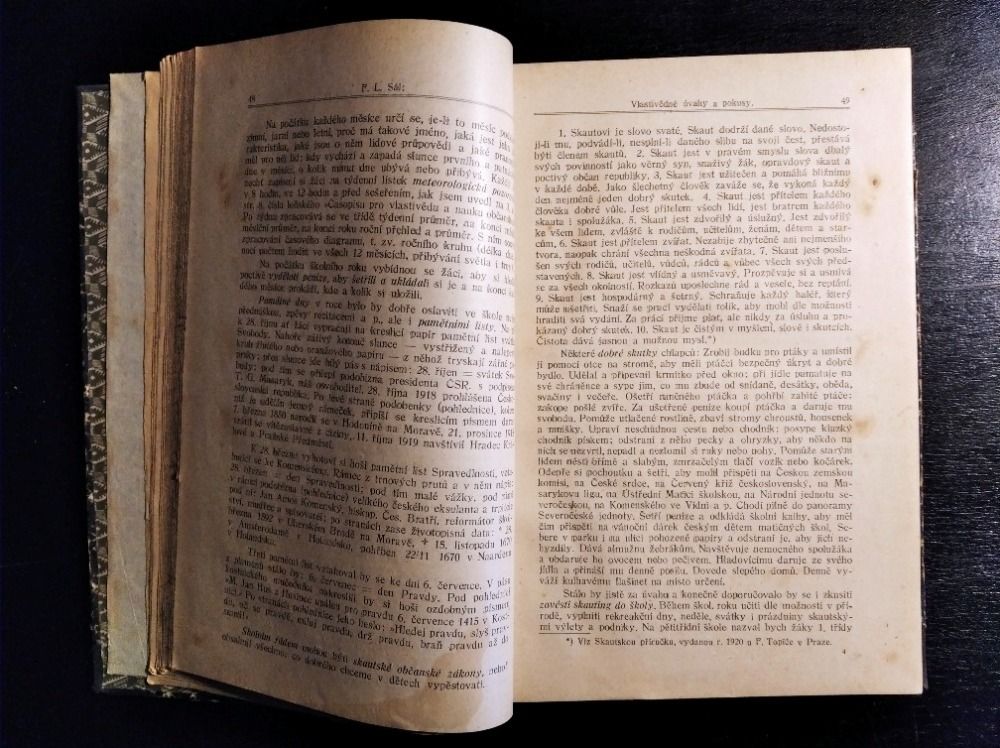 48
F. L. Sál:
Na počátku každého měsíce určí se, je-li to měsíc
zimní, jarní nebo letní, proč má takové jméno, jaká jest jeho
rakteristika, jaké jsou o něm lidové průpovědi a jaké
měl pro náš lid; kdy vychází a zapadá slunce prvního a
dne v měsíci, o kolik minut dne ubývá nebo přibývá.
nechť zapisují si žáci na týdenní lístek meteorologická
v 8 hodin, ve 12 hodin a před sešeřením, jak jsem uvedl na
str. 8. čísla loňského »Časopisu pro vlastivědu a nauku
Po týdnu zpracovává se ve třídě týdenní průměr, na konci
měsíční průměr, na konci roku roční přehled a průměr. S ním
zpracování časového diagramu, t. zv. ročního kruhu (délka
nocí počtem hodin ve všech 12 měsících, přibývání světla i
Na počátku školního roku vybídnou se žáci, aby si
poctivě vydělali peníze, aby šetřili a ukládali si je a na konci
dého měsíce prokáží, kde a kolik si uložili.
Památné dny v roce bylo by dobře oslaviti ve škole
přednáškou, zpěvy, recitacemi a p., ale i pamětními listy.
k 28. říjnu ať žáci vypracují na kreslicí papír pamětní list
Svobody. Nahoře zářivý kotouč slunce — vystřižený a
kruh žlutého nebo oranžového papíru — z něhož tryskají zářné
prsky; přes slunce jde bílý pás s nápisem: 28. říjen = svátek
body; pod tím se přilepí podobizna presidenta ČSR. s podpisem
T. G. Masaryk, náš osvoboditel. 28. října 1918 prohlášena
slovenská republika. Po levé straně podobenky (pohlednice),
níž je udělán jemný rámeček, připíší se kreslicím písmem
7. března 1850 narodil se v Hodoníně na Moravě, 21. prosince 1918
vrátil se vítězoslavně z ciziny, 11. října 1919 navštívil Hradec
lové a Pražské Předměstí.
K 28. březnu vyhotoví si hoši pamětní list Spravedlnosti,
hující se ke Komenskému. Rámec z trnových prutů a v něm nápis:
28. březen = den Spravedlnosti; pod tím malé vážky, pod nimi
v rámci podobizna (pohlednice) velikého českého exulanta a
pod ní: Jan Amos Komenský, biskup Čes. Bratří, reformátor
ství, mudřec a spisovatel; po stranách zase životopisná data: * 28.
března 1592 v Uherském Brodě na Moravě, † 15. listopadu 1670
v Amsterodamě v Holandsku, pohřben 22/11 1670 v Naardenu
v Holandsku.
Třetí pamětní list vztahoval by se ke dni 6. července. V pásu
z plamenů stálo by: 6. červenec = den Pravdy. Pod pohlednicí
kostnického mučedníka nakreslili by si hoši ozdobným písmem:
»M. Jan Hus z Husince upálen pro pravdu 6. července 1415 v Kost-
nici.« Po stranách pohlednice jeho heslo: »Hledej pravdu, slyš prav-
du, uč se pravdě, miluj pravdu, drž pravdu, braň pravdu až do
smrti!«
Školním řádem mohou býti skautské občanské zákony, neboť
obsahují všechno, co dobrého chceme v dětech vypěstovati.
Vlastivědné úvahy a pokusy.
49
1. Skautovi je slovo svaté. Skaut dodrží dané slovo. Nedosto-
jí-li mu, podvádí-li, nesplní-li daného slibu na svoji čest, přestává
býti členem skautů. 2. Skaut jest v pravém smyslu slova dbalý
svých povinností jako věrný syn, snaživý žák, opravdový skaut a
poctivý občan republiky. 3. Skaut jest užitečen a pomáhá bližnímu
v každé době. Jako šlechetný člověk zaváže se, že vykoná každý
den nejméně jeden dobrý skutek. 4. Skaut jest přítelem každého
člověka dobré vůle. Jest přítelem všech lidí, jest bratrem každého
skauta i spolužáka. 5. Skaut jest zdvořilý a úslužný. Jest zdvořilý
ke všem lidem, zvláště k rodičům, učitelům, ženám, dětem a star-
cům. 6. Skaut jest přítelem zvířat. Nezabije zbytečně ani nejmenšího
tvora, naopak chrání všechna neškodná zvířata. 7. Skaut jest poslu-
šen svých rodičů, učitelů, vůdců, rádců a vůbec všech svých před-
stavených. 8. Skaut jest vlídný a usměvavý. Prozpěvuje si a usmívá
se za všech okolností. Rozkazů uposlechne rád a vesele, bez reptání.
9. Skaut jest hospodárný a šetrný. Schraňuje každý haléř, který
může ušetřiti. Snaží se prací vydělati tolik, aby mohl dle možnosti
hraditi svá vydání. Za práci přijme plat, ale nikdy za úsluhu a pro-
kázaný dobrý skutek. 10. Skaut je čistým v myšlení, slově i skutcích.
Čistota dává jasnou a mužnou mysl.*)
Některé dobré skutky chlapců: Zrobil budku pro ptáky a umístil
ji pomocí otce na stromě, aby měli ptáčci bezpečný úkryt a dobré
bydlo. Udělal a připevnil krmítko před okno; při jídle pamatuje na
své chráněnce a sype jim, co mu zbude od snídaně, desátky, oběda,
svačiny i večeře. Ošetří raněného ptáčka a pohřbí zabité ptáče;
zakope pošlé zvíře. Za ušetřené peníze koupí ptáčka a daruje mu
svobodu. Pomůže utlačené rostlině, zbaví stromy chroustů, housenek
a mnišky. Upraví neschůdnou cestu nebo chodník; posype kluzký
chodník pískem; odstraní z něho pecky a ohryzky, aby někdo na
nich se nezvrtl, nepadl a nezlomil si ruky nebo nohy. Pomůže starým
lidem nésti břímě a slabým, zmrzačelým tlačí vozík nebo kočárek.
Odepře si pochoutku a šetří, aby mohl přispěti na Českou zemskou
komisi, na České srdce, na Červený kříž československý, na Ma-
sarykovu ligu, na Ústřední Matici školskou, na Národní jednotu se-
veročeskou, na Komenského ve Vídni a p. Chodí pilně do panoramy
Severočeské jednoty. Šetří peníze a odkládá školní knihy, aby měl
čím přispěti na vánoční dárek českým dětem matičných škol. Se-
bere v parku i na ulici pohozené papíry a odstraní je, aby jich ne-
hyzdily. Dává almužnu žebrákům. Navštěvuje nemocného spolužáka
a obdaruje ho ovocem nebo pečivem. Hladovícímu daruje ze svého
jídla a přináší mu denně poesii. Dovede slepého domů. Denně vy-
váží kulhavému flašinet na místo určení.
Stálo by jistě za úvahu a konečně doporučovalo by se i zkusiti
zavésti skauting do školy. Během škol. roku učiti dle možnosti v pří-
rodě, vyplniti rekreakční dny, neděle, svátky i prázdniny skautský-
mi výlety a podniky. Na pětitřídní škole nazval bych žáky 1. třídy
*) Viz Skautskou příručku, vydanou r. 1920 u F. Topiče v Praze.
4